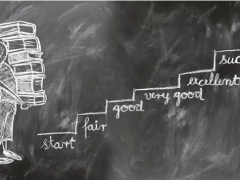 start
fair
good
very good
excellent
suc